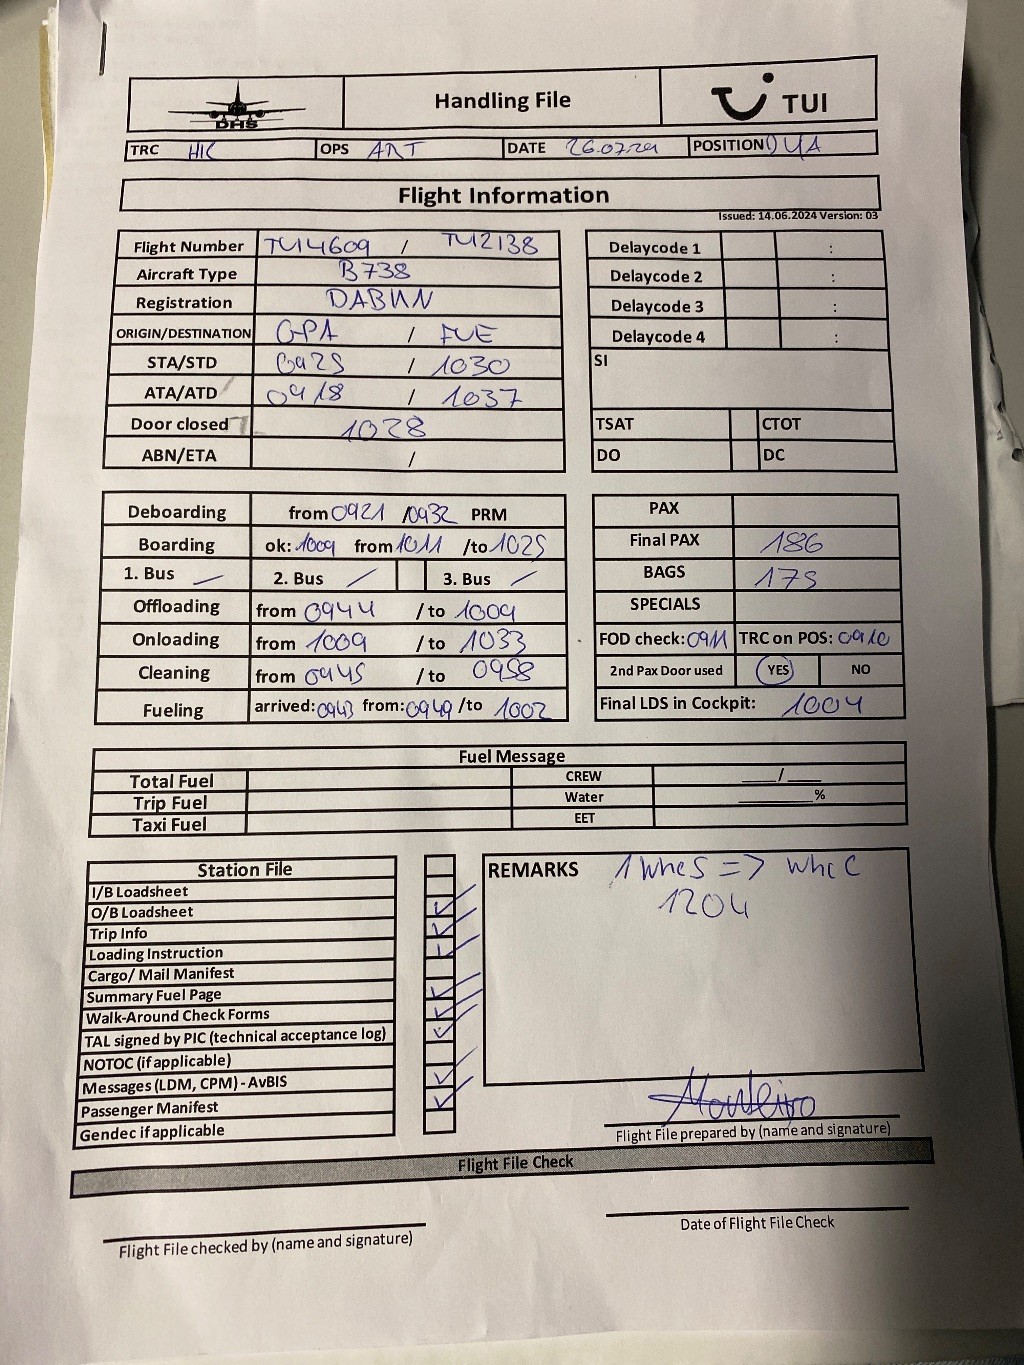 DHS Handling File TUI
TRC HIC OPS ART DATE 26.07.24 POSITION 04A
Flight Information
Issued: 14.06.2024 Version: 03
Flight Number TUI4609 / TUI2138
Aircraft Type B738
Registration DABMN
ORIGIN/DESTINATION GPA / FUE
STA/STD 0925 / 1030
ATA/ATD 0918 / 1037
Door closed 1028
ABN/ETA /
Delaycode 1 :
Delaycode 2 :
Delaycode 3 :
Delaycode 4 :
SI
TSAT CTOT
DO DC
Deboarding from 0921 /0932 PRM
Boarding ok: 1009 from 1011 /to 1025
1. Bus / 2. Bus / 3. Bus /
Offloading from 0944 / to 1009
Onloading from 1009 / to 1033
Cleaning from 0945 / to 0958
Fueling arrived: 0943 from: 0949 /to 1002
PAX
Final PAX 186
BAGS 175
SPECIALS
FOD check: 0911 TRC on POS: 0910
2nd Pax Door used YES NO
Final LDS in Cockpit: 1004
Fuel Message
Total Fuel CREW ___/___
Trip Fuel Water ______%
Taxi Fuel EET
Station File
I/B Loadsheet
O/B Loadsheet
Trip Info
Loading Instruction
Cargo/ Mail Manifest
Summary Fuel Page
Walk-Around Check Forms
TAL signed by PIC (technical acceptance log)
NOTOC (if applicable)
Messages (LDM, CPM) - AvBIS
Passenger Manifest
Gendec if applicable
REMARKS 1 whcS => whcC
1204
Monteiro
Flight File prepared by (name and signature)
Flight File Check
Flight File checked by (name and signature)
Date of Flight File Check